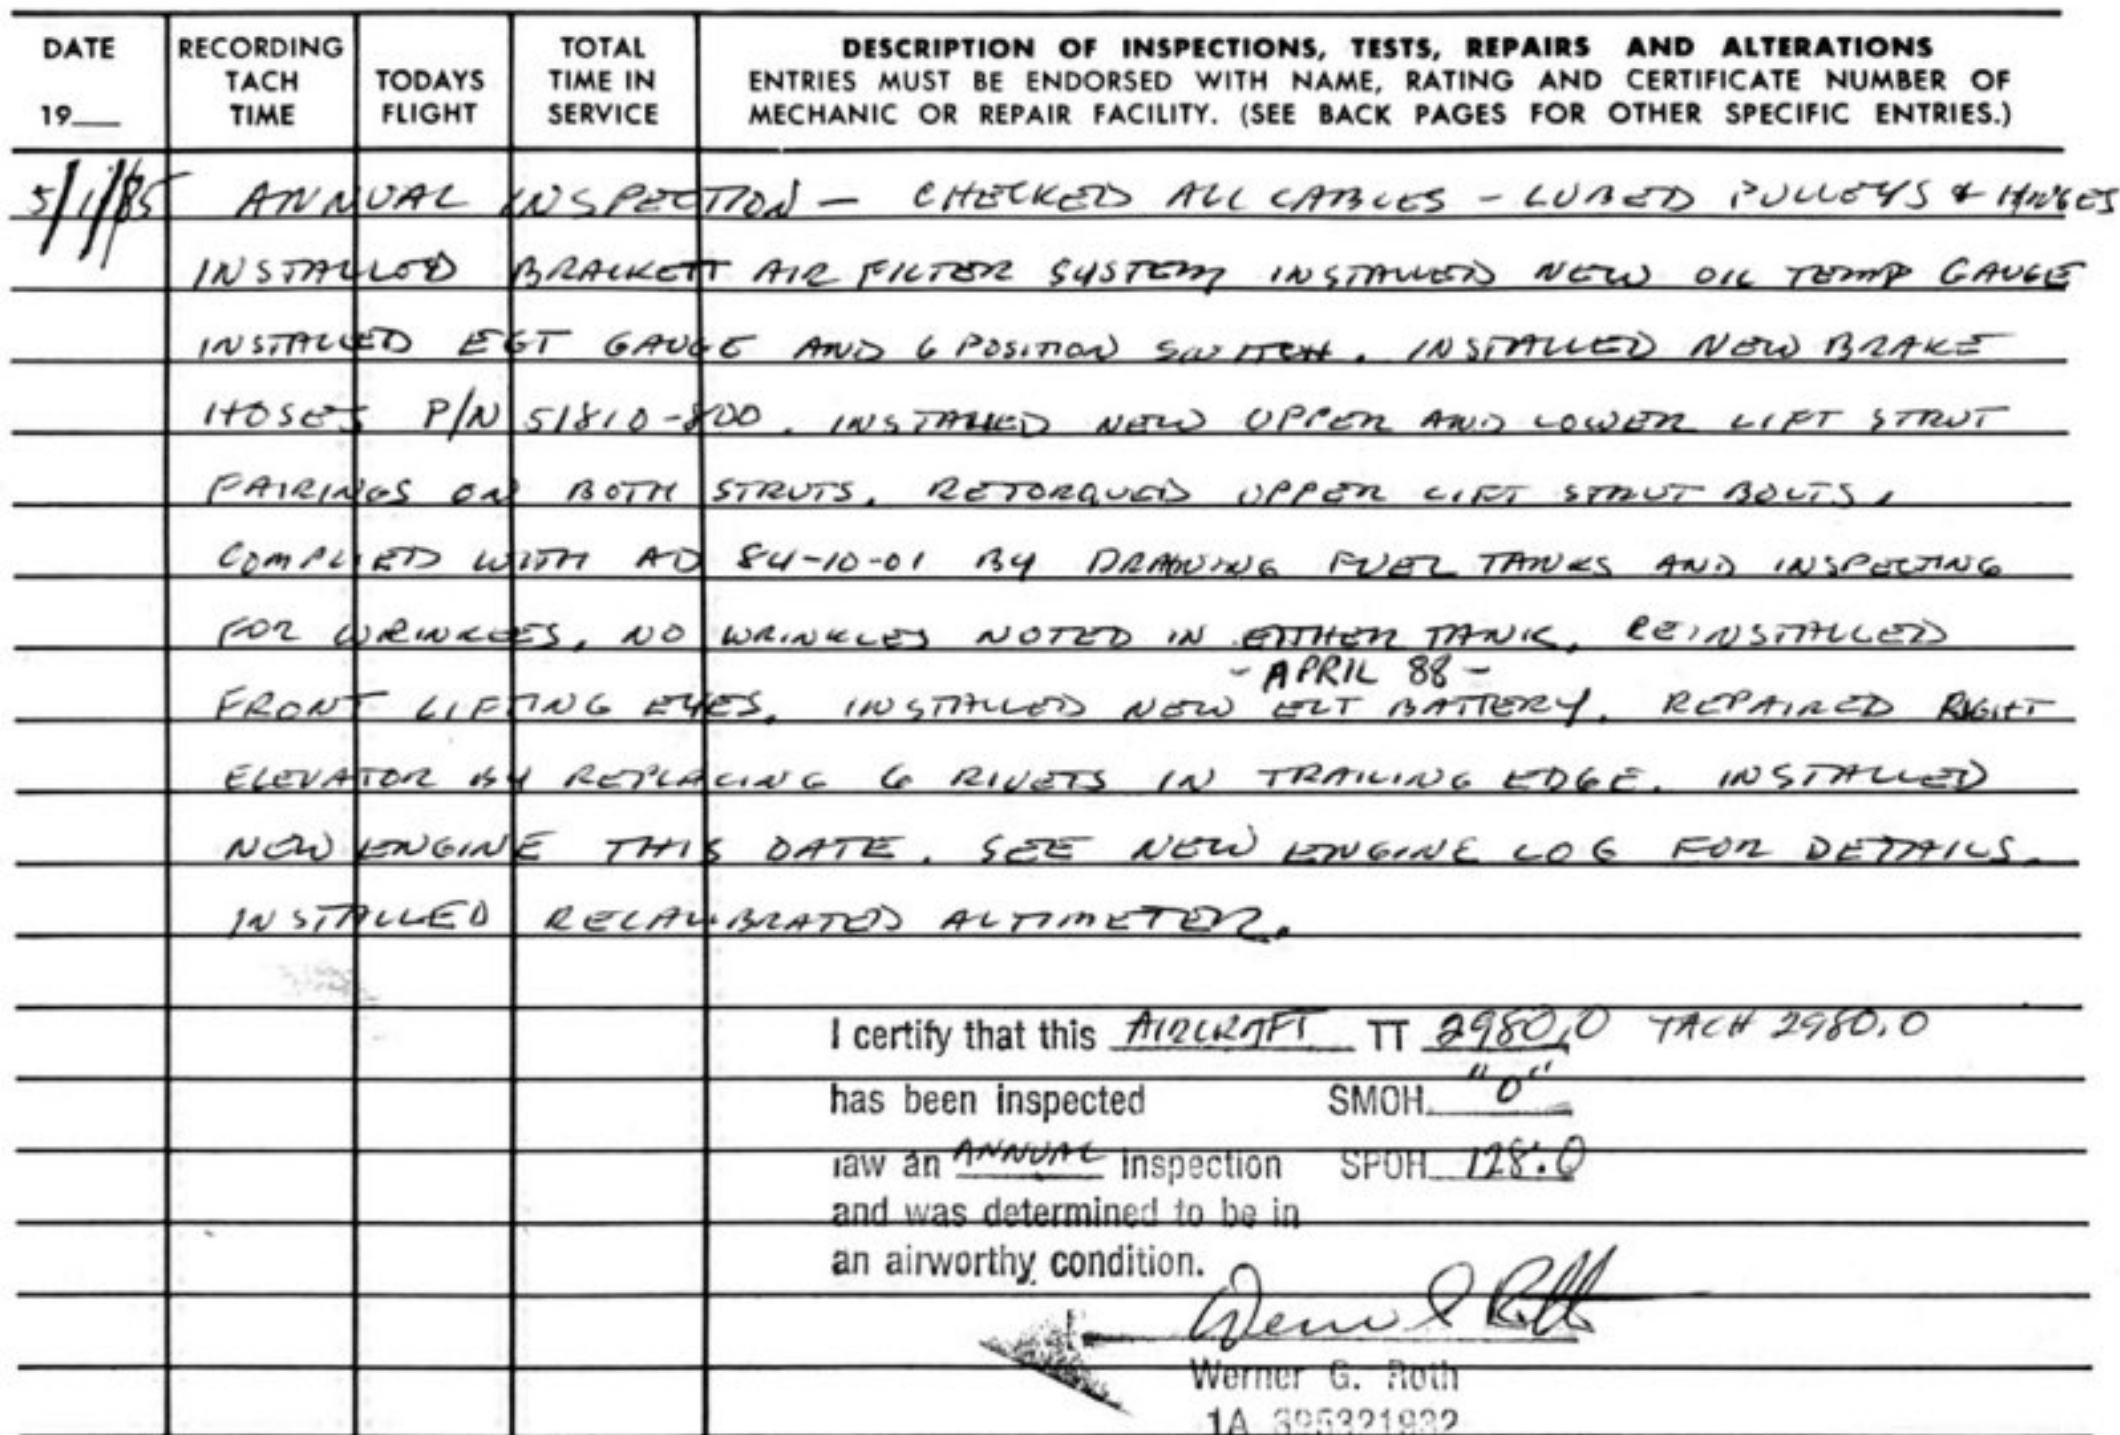 DATE 19__ RECORDING TACH TIME TODAYS FLIGHT TOTAL TIME IN SERVICE
DESCRIPTION OF INSPECTIONS, TESTS, REPAIRS AND ALTERATIONS
ENTRIES MUST BE ENDORSED WITH NAME, RATING AND CERTIFICATE NUMBER OF
MECHANIC OR REPAIR FACILITY. (SEE BACK PAGES FOR OTHER SPECIFIC ENTRIES.)
5/1/85 ANNUAL INSPECTION - CHECKED ALL CABLES - LUBED PULLEYS & HINGES
INSTALLED BRACKETT AIR FILTER SYSTEM INSTALLED NEW OIL TEMP GAUGE
INSTALLED EGT GAUGE AND 6 POSITION SWITCH. INSTALLED NEW BRAKE
HOSES P/N 51810-800. INSTALLED NEW UPPER AND LOWER LIFT STRUT
FAIRINGS ON BOTH STRUTS. RETORQUED UPPER LIFT STRUT BOLTS.
COMPLIED WITH AD 84-10-01 BY DRAINING FUEL TANKS AND INSPECTING
FOR WRINKLES, NO WRINKLES NOTED IN EITHER TANK. REINSTALLED
- APRIL 88 -
FRONT LIFTING EYES. INSTALLED NEW ELT BATTERY. REPAIRED RIGHT
ELEVATOR BY REPLACING 6 RIVETS IN TRAILING EDGE. INSTALLED
NEW ENGINE THIS DATE. SEE NEW ENGINE LOG FOR DETAILS.
INSTALLED RECALIBRATED ALTIMETER.
I certify that this AIRCRAFT TT 2980.0 TACH 2980.0
has been inspected SMOH "0"
iaw an ANNUAL inspection SPOH 128.0
and was determined to be in
an airworthy condition.
Werner G. Roth
1A 395321932